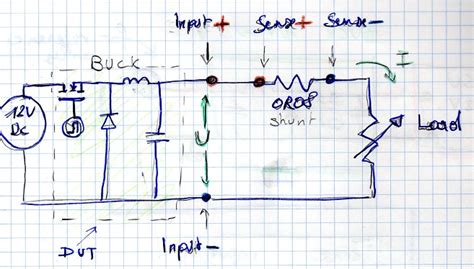 Input + Sense + Sense -
I
Buck
12V
DC
U
shunt
Load
DUT
Input -